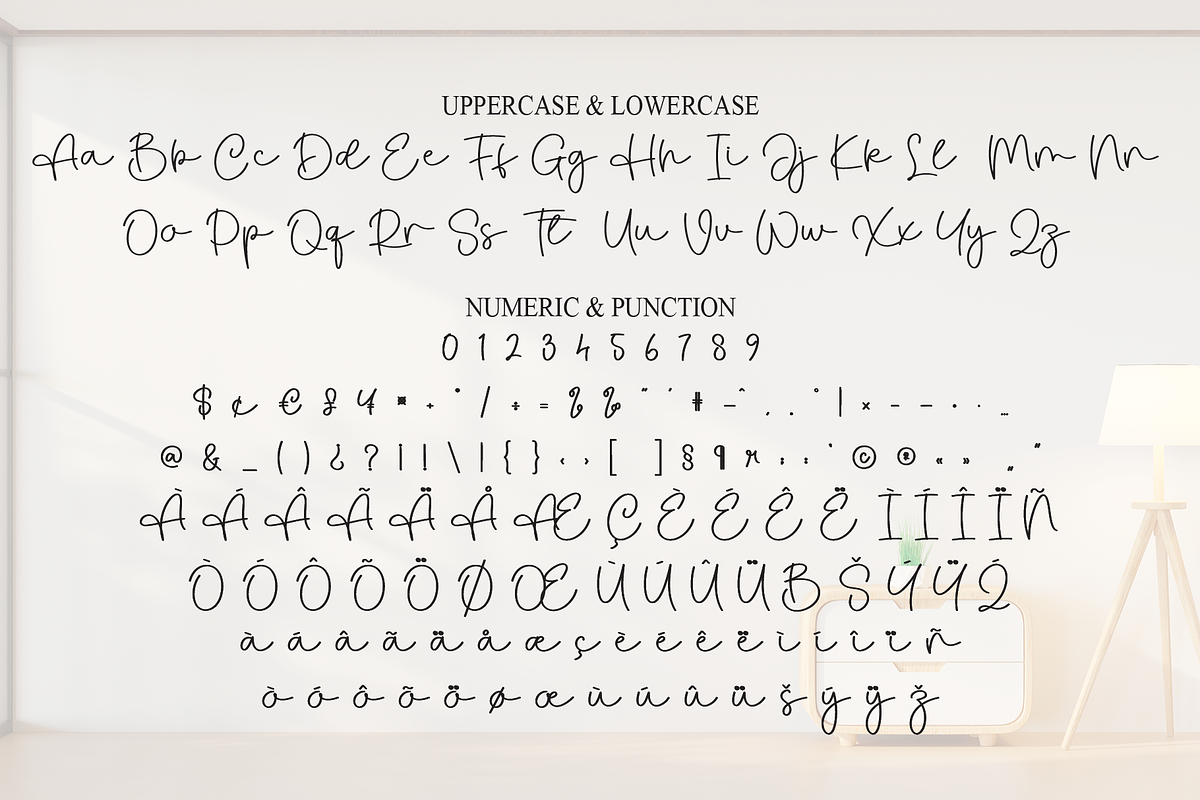 UPPERCASE & LOWERCASE
Aa Bb Cc Dd Ee Ff Gg Hh Ii Jj Kk Ll Mm Nn
Oo Pp Qq Rr Ss Tt Uu Vv Ww Xx Yy Zz
NUMERIC & PUNCTION
0 1 2 3 4 5 6 7 8 9
$ ¢ € £ ¥ ¤ + • / ÷ = % ‰ " ' # – ^ , . ° | × - – · · …
@ & _ ( ) ¿ ? ¡ ! \ | { } ‹ › [ ] § ¶ : ; ' © ® « » „ "
À Á Â Ã Ä Å Æ Ç È É Ê Ë Ì Í Î Ï Ñ
Ò Ó Ô Õ Ö Ø Œ Ù Ú Û Ü B Š Ý Ÿ Ž
à á â ã ä å æ ç è é ê ë ì í î ï ñ
ò ó ô õ ö ø œ ù ú û ü š ý ÿ ž